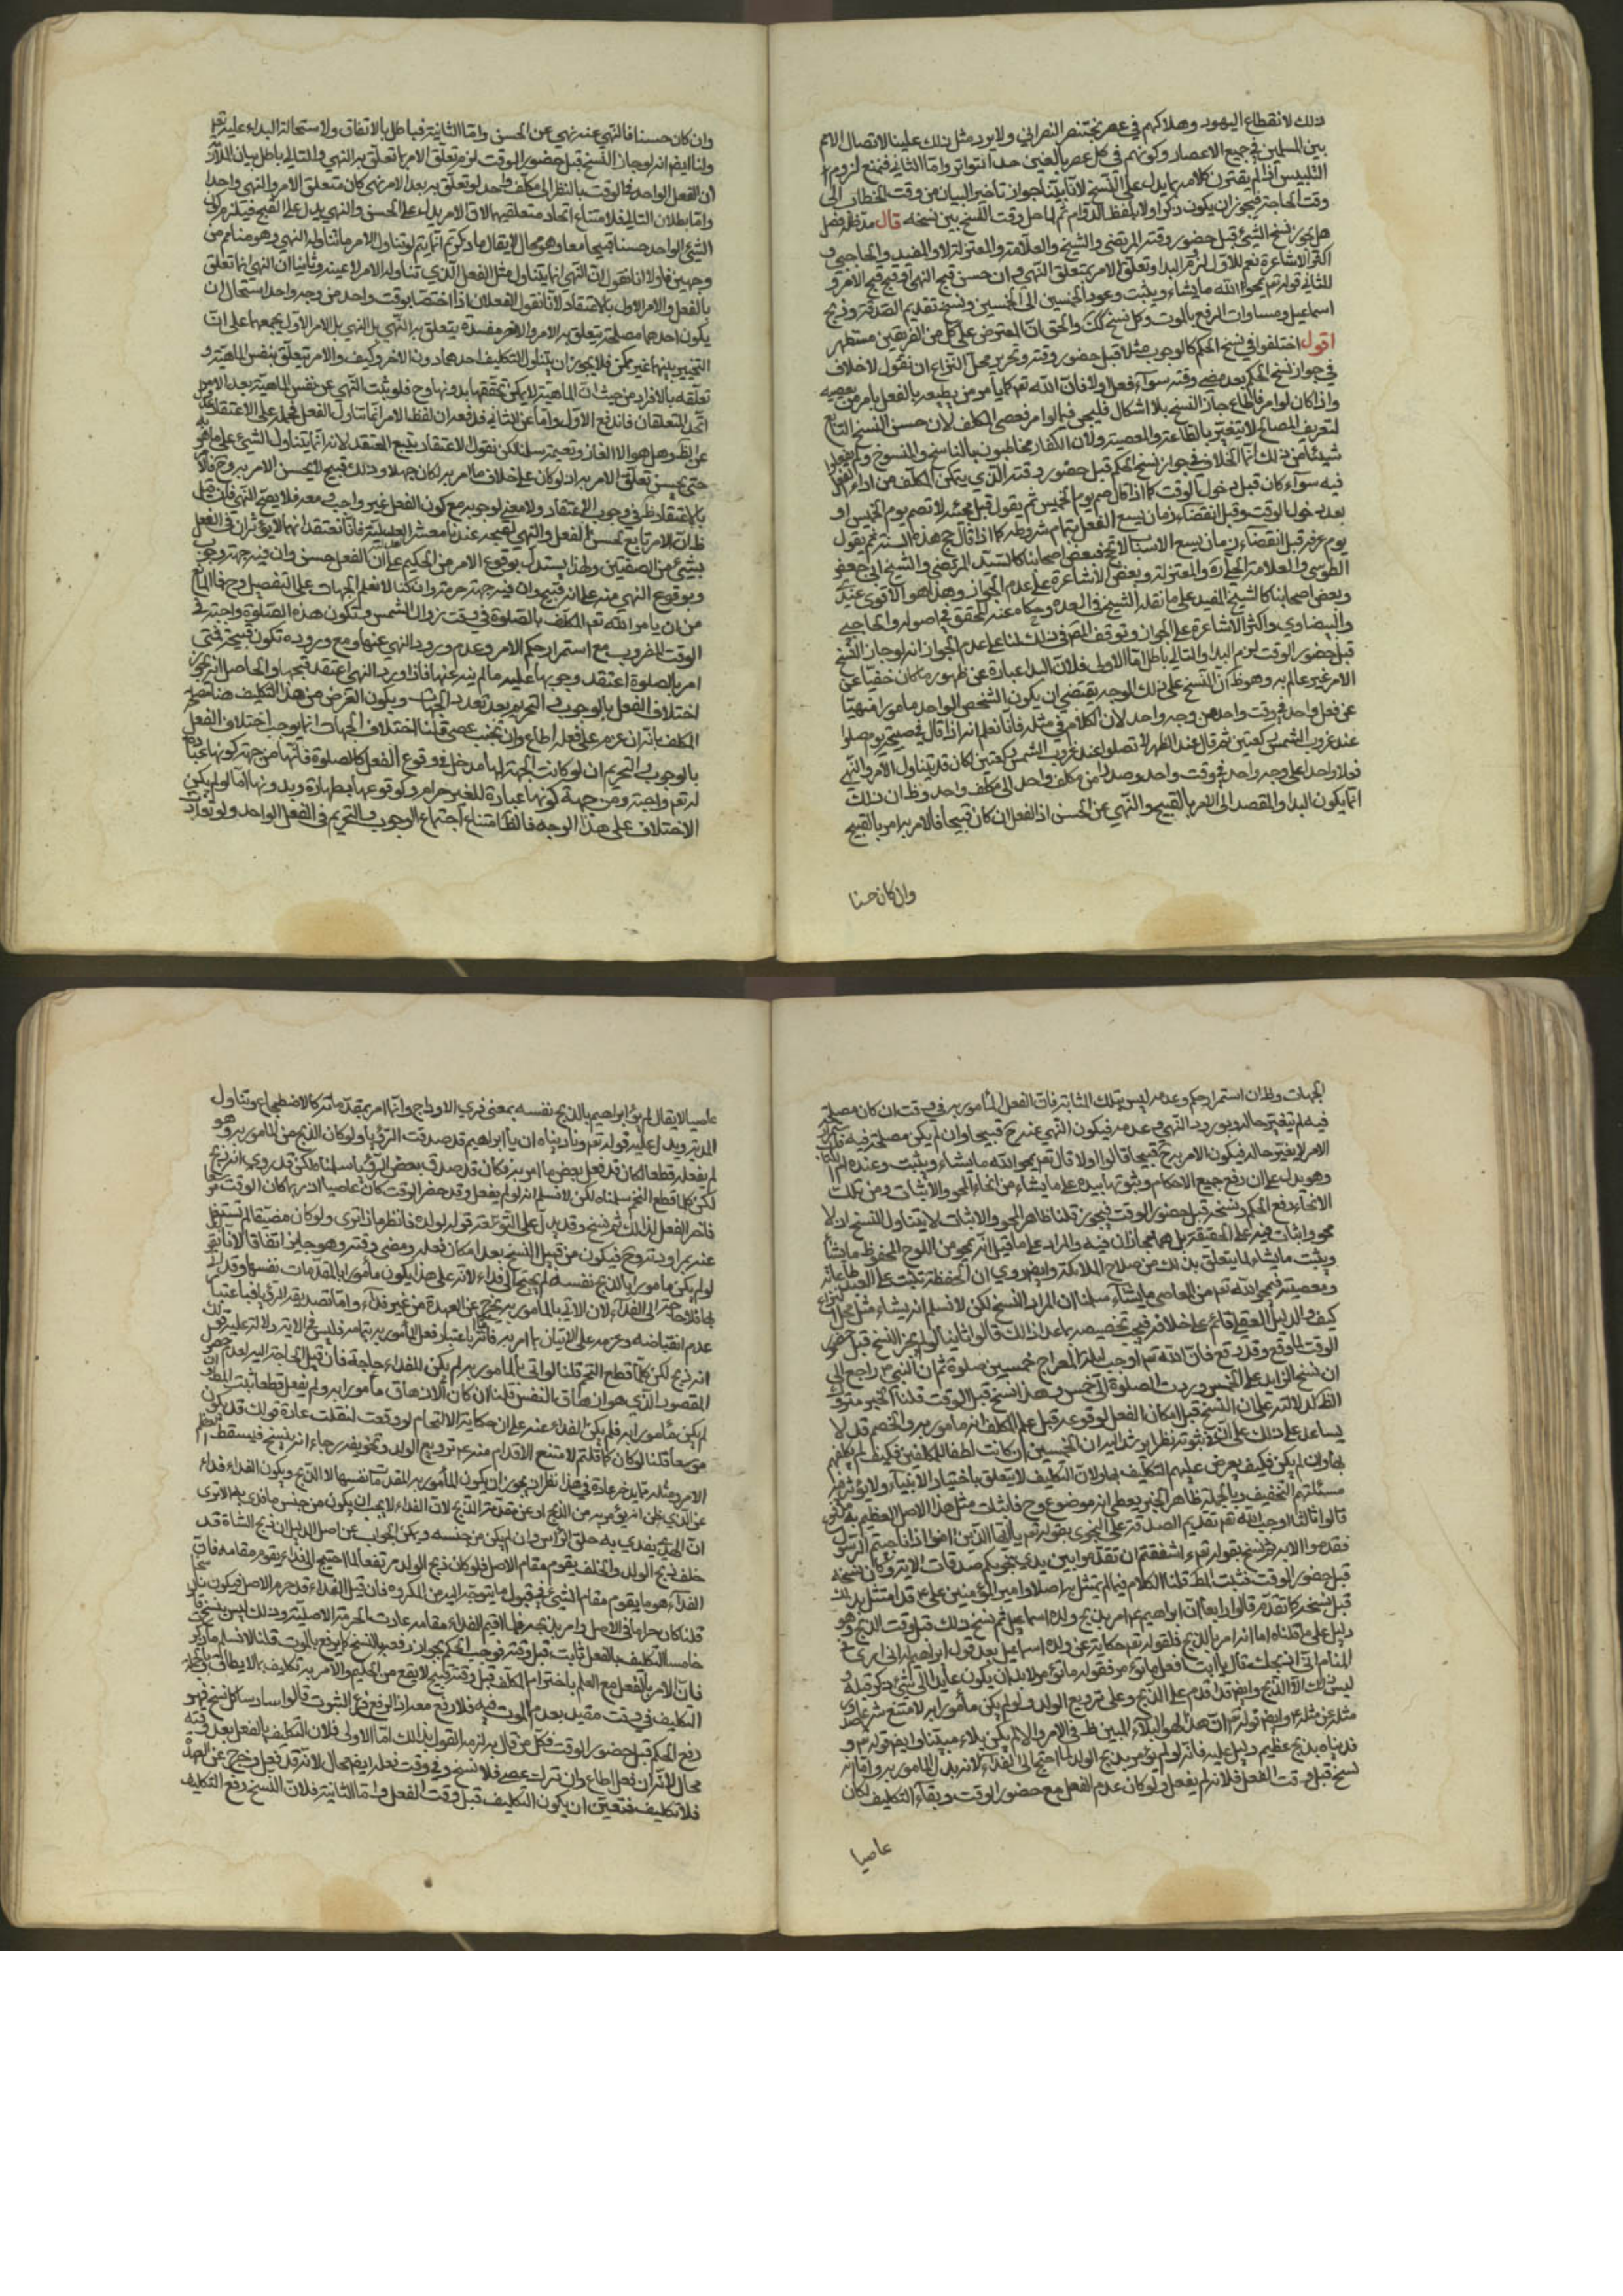 ذلك لانقطاع اليهود وهلاكهم في عصر بختنصر النصراني ولا يرد مثل ذلك علينا لاتصال الامم
بين المسلمين في جميع الاعصار وكونهم في كل عصر بالغين حد التواتر واما الثاني فنمنع لزوم
التلبيس اذا لم يقترن كلامه بما يدل على النسخ لانا بينا جواز تاخير البيان من وقت الخطاب الى
وقت الحاجة فيجوز ان يكون ذكر اولا بلفظ الدوام ثم لما حل وقت النسخ بين نسخه قال مد ظله فصل
هل يجوز نسخ الشيء قبل حضور وقته المرتضى والشيخ والعلامة والمعتزلة لا والمفيد والحاجبي و
اكثر الاشاعرة نعم للاول لزم البدا وتعلق الامر بمتعلق النهي وان حسن قبح النهي او قبح قبح الامر و
للثاني قوله تعالى يمحو الله ما يشاء ويثبت وعود الخمسين الى الخمس ونسخ تقديم الصدقة وذبح
اسماعيل ومساوات الرفع بالموت وكل نسخ كك والحق ان المعترض على كل من الفريقين مستظهر
اقول اختلفوا في نسخ الحكم كالوجوب مثلا قبل حضور وقته وتحرير محل النزاع ان نقول لا خلاف
في جواز نسخ الحكم بعد مضي وقته سواء فعل اولا فان الله تعالى كما يامر من يطيعه بالفعل يامر من يعصيه
واذا كان لو امر فاطاع جاز النسخ بلا اشكال فليجز فيما لو امر فعصى المكلف لان حسن النسخ التابع
لتعريف المصالح لا يتغير بالطاعة والمعصية ولان الكفار مخاطبون بالناسخ والمنسوخ ولم يفعلوا
شيئا من ذلك انما الخلاف في جواز نسخ الحكم قبل حضور وقته الذي يتمكن المكلف من اداء الفعل
فيه سواء كان قبل دخول الوقت كما اذا قال صم يوم الخميس ثم يقول قبل مجيئه لا تصم يوم الخميس او
بعد دخول الوقت وقبل انقضاء زمان يسع الفعل بتمام شروطه كما اذا قال حج هذه السنة ثم يقول
يوم عرفة قبل انقضاء زمان يسع الاسباب لا تحج فبعض اصحابنا كالسيد المرتضى والشيخ ابي جعفر
الطوسي والعلامة الحلي ره والمعتزلة وبعض الاشاعرة على عدم الجواز وهذا هو الاقوى عندي
وبعض اصحابنا كالشيخ المفيد على ما نقله الشيخ في العدة وحكاه عنه المحقق في اصوله والحاجبي
والبيضاوي واكثر الاشاعرة على الجواز وتوقف المص في ذلك لنا على عدم الجواز انه لو جاز النسخ
قبل حضور الوقت لزم البدا والتالي باطل اما الاولى فلان البدا عبارة عن ظهور ما كان خفيا عن
الامر غير عالم به وهو ظ لان النسخ على ذلك الوجه يقتضي ان يكون الشخص الواحد مامورا منهيا
عن فعل واحد في وقت واحد من وجه واحد لان الكلام في مثله فانا نعلم انه اذا قال في صبيحة يوم صلوا
عند غروب الشمس ركعتين ثم قال عند الظهر لا تصلوا عند غروب الشمس ركعتين لكان قد تناول الامر والنهي
فعلا واحدا على وجه واحد في وقت واحد وصدرا من مكلف واحد الى مكلف واحد وظ ان ذلك
انما يكون البدا والمقصد الى الامر بالقبيح والنهي عن الحسن اذ الفعل ان كان قبيحا فالامر به امر بالقبيح
وان كان حسنا
وان كان حسنا فالنهي عنه نهي عن الحسن واما الثانية فباطل بالاتفاق ولاستحالة البداء عليه تعالى
ولنا ايضا انه لو جاز النسخ قبل حضور الوقت لزم تعلق الامر بما تعلق به النهي والتالي باطل بيان اللازمة
ان الفعل الواحد في الوقت بالنظر الى مكلف واحد لو تعلق به بعد الامر نهي كان متعلق الامر والنهي واحدا
واما بطلان التالي فلامتناع اتحاد متعلقيهما لان الامر يدل على الحسن والنهي يدل على القبح فيلزم كون
الشيء الواحد حسنا قبيحا معا وهو محال لا يقال ما ذكرتم انما يتم لو تناول الامر ما تناوله النهي وهو مناع من
وجهين فاولا انا نقول ان النهي انما يتناول مثل الفعل الذي تناوله الامر لا عينه وثانيا ان النهي انما تعلق
بالفعل والامر الاول بالاعتقاد لانا نقول الفعلان اذا اختصا بوقت واحد من وجه واحد استحال ان
يكون احدهما مصلحة يتعلق به الامر والاخر مفسدة يتعلق به النهي بل النهي بل الامر الاول يجمعهما على ان
التخيير بينهما غير ممكن فلا يجوز ان يتناول التكليف احدهما دون الاخر وكيف والامر يتعلق بنفس الماهية و
تعلقه بالافراد من حيث ان الماهية لا يمكن تحققها بدونها وح فلو ثبت النهي عن نفس الماهية بعد الامر
اتحد المتعلقان فاندفع الاول واما عن الثاني فلا نعدل ان لفظ الامر انما تناول الفعل فحمله على الاعتقاد
حتى يحسن تعلق الامر به اذ لو كان على خلاف ما امر به لكان جهلا وذلك قبيح لا يحسن الامر به وح فالا
بالاعتقاد ظ في وجوب الاعتقاد ولا معنى لوجوبه مع كون الفعل غير واجب معه فلا يصح النهي فان قيل
ظ ان الامر تابع لحسن الفعل والنهي لقبحه عندنا معشر العدلية فانا نعتقد انهما لا يؤثران في الفعل
بشيء من الصفتين ولهذا يستدل بوقوع الامر من الحكيم على ان الفعل حسن وان فيه جهة وجوب
وبوقوع النهي منه على انه قبيح وان فيه جهة حرمة وان كنا لا نعلم الجهات على التفصيل وح فما المانع
من ان يامر الله تعم المكلف بالصلوة في وقت زوال الشمس وتكون هذه الصلوة واجبة في
الوقت المضروب مع استمرار حكم الامر وعدم ورود النهي عنها ومع وروده تكون قبيحة فمتى
امر بالصلوة اعتقد وجوبها عليه ما لم ينه عنها فاذا ورد النهي اعتقد قبحها والحاصل انه يجوز
اختلاف الفعل بالوجوب والتحريم بعد تعدد الجهات ويكون الغرض من هذا التكليف هنا مصلحة
المكلف بانه ان عزم على فعله اطاع وان تجنب عصى قلنا اختلاف الجهات انما يوجب اختلاف الفعل
بالوجوب والتحريم ان لو كانت الجهة لها مدخل في وقوع الفعل كالصلوة فانها من جهة كونها عبادة
له تعم واجبة ومن جهة كونها عبادة للغير حرام ولوقوعها بطهارة وبدونها اما لو لم يكن
الاختلاف على هذا الوجه فالظ امتناع اجتماع الوجوب والتحريم في الفعل الواحد ولو تعددت
الجهات وظ ان استمرار حكم وعدمه ليس بتلك المثابة فان الفعل المأمور به في وقت ان كان مصلحة
فيه لم يتغير حاله بورود النهي وعدمه فيكون النهي عنه ح قبيحا وان لم يكن مصلحة فيه فاستمرار
الامر لا يغير حاله فيكون الامر به ح قبيحا قالوا اولا قال تعم يمحو الله ما يشاء ويثبت وعنده ام الكتاب
وهو يدل على ان رفع جميع الاحكام وثبوتها بيده على ما يشاء من انحاء المحو والاثبات ومن تلك
الانحاء رفع الحكم ونسخه قبل حضور الوقت فيجوز قلنا ظاهر المحو والاثبات لا يتناول النسخ اذ لا
محو واثبات فيه على الحقيقة بل هما مجازان فيه والمراد على ما قيل انه يمحو من اللوح المحفوظ ما يشاء
ويثبت ما يشاء لما يتعلق بذلك من صلاح الملائكة وايضا روي ان الحفظة تكتب على العبد طاعاته
ومعصيته فيمحو الله تعم من المعاصي ما يشاء سلمنا ان المراد النسخ لكن لا نسلم انه يشاء مثل محل النزاع
كيف والدليل العقلي قائم على خلافه فيجب تخصيصه بما عدا ذلك قالوا ثانيا لو لم يجز النسخ قبل حضور
الوقت لما وقع وقد وقع فان الله تعم اوجب ليلة المعراج خمسين صلوة ثم ان النبي ص راجع الى
ان نسخ الزايد على الخمس وردت الصلوة الى خمس وهذا نسخ قبل الوقت قلنا الخبر متروك
الظ لدلالته على ان النسخ قبل امكان الفعل لوقوعه قبل علم المكلف انه مامور به والخصم قد لا
يساعد على ذلك على ان في ثبوته نظرا يرشد اليه ان الخمسين ان كانت لطفا للمكلفين فكيف لم يكلفهم
بها وان لم يكن فكيف يعرض عليهم التكليف بها ولان التكليف لا يتعلق باختيار الانبياء ولا يؤثر فيه
مسئلتهم التخفيف وبالجملة ظاهر الخبر يعطي انه موضوع وح فاثبات مثل هذا الاصل العظيم به مكروه
قالوا ثالثا اوجب الله تعم تقديم الصدقة على النجوى بقوله تعم يا ايها الذين امنوا اذا ناجيتم الرسول
فقدموا الاية ثم نسخ بقوله تعم ءاشفقتم ان تقدموا بين يدي نجويكم صدقات الاية وكان نسخه
قبل حضور الوقت فثبت المط قلنا الكلام فيما لم يمتثل به اصلا وامير المؤمنين علي ع قد امتثل بذلك
قبل نسخه كما تقدم قالوا رابعا ان ابراهيم ع امر بذبح ولده اسماعيل ثم نسخ ذلك قبل وقت الذبح وهو
دليل على ما قلناه اما انه امر بالذبح فلقوله تعم حكاية عن ولده اسماعيل بعد قول ابراهيم له اني ارى في
المنام اني اذبحك قال يا ابت افعل ما تؤمر فقوله ما تؤمر لا بد ان يكون عايدا الى شيء ذكر قبله و
ليس ذلك الا الذبح وايضا قد اقدم على الذبح وعلى ترويع الولد ولو لم يكن مأمورا به لامتنع شرعا صدور
مثله عن مثله ع وايضا قوله تعم ان هذا لهو البلاء المبين ظ في الامر والا لم يكن بلاء مبينا وايضا قوله تعم و
فديناه بذبح عظيم دليل عليه فانه لو لم يؤمر بذبح الولد لما احتيج الى الفداء لانه بدل المامور به واما انه
نسخ قبل وقت الفعل فلانه لم يفعل ولو كان عدم الفعل مع حضور الوقت وبقاء التكليف لكان
عاصيا
عاصيا لا يقال لم يؤمر ابراهيم بالذبح نفسه بمعنى فري الاوداج وانما امر بمقدماته كالاضطجاع وتناول
المدية ويدل عليه قوله تعم وناديناه ان يا ابراهيم قد صدقت الرؤيا ولو كان الذبح من المأمور به وهو
لم يفعله قطعا لكان قد فعل بعض ما امر به فكان قد صدق بعض الرؤيا سلمنا لكن قد روي انه ذبح
لكن كلما قطع التحم سلمناه لكن لا نسلم انه لو لم يفعل وقد حضر الوقت كان عاصيا اذ ربما كان الوقت موسعا
فاخر الفعل لذلك ثم نسخ وقد يدل على التوسعة قوله لولده فانظر ماذا ترى ولو كان مضيقا لم يستفد
عنه براو وتروح فيكون من قبيل النسخ بعد امكان فعله ومضي وقته وهو جايز اتفاقا لانا نقول
لو لم يكن مامورا بالذبح نفسه لم يحتج الى فداء لانه على هذا يكون مأمورا بالمقدمات نفسها وقد اتى
بها فلا حاجة الى الفداء لان الاتي بالمامور به يخرج عن العهدة من غير فداء واما تصديقه الرؤيا فباعتبار
عدم انقباضه وعزمه على الاتيان بما امر به فاثر باعتبار فعل المأمور به بتمامه فليس في الاية دلالة عليه وقوله
انه ذبح لكن كلما قطع التحم قلنا لو اتى بالمامور به لم يكن للفداء حاجة فان قيل الحاجة اليه لعدم حصول
المقصود الذي هو ازهاق النفس قلنا ان كان الازهاق مأمورا به ولم يفعل قطعا ثبت المط وان
لم يكن مأمورا به فلم يكن الفداء عنه على ان حكاية الالتحام لو وقعت لنقلت عادة قولك قد يكون
موسعا قلنا لو كان كما قلتم لامتنع الاقدام منه ع ترويع الولد وتخويفه رجاء انه ينسخ فيسقط
الامر ومثله مما يدخر عادة في هذا نظر اذ يجوز ان يكون المأمور به المقدمات نفسها لا الذبح ويكون الفداء فداء
عن الذي يظن انه يؤمر به من الذبح او عن مقدمة الذبح لان الفداء لا يجب ان يكون من جنس ما فدي به الا ترى
ان الهدي يفدي به حلق الراس وان لم يكن من جنسه ويمكن الجواب عن اصل الدليل ان ذبح الشاة قد
خلف ذبح الولد والخلف يقوم مقام الاصل فلو كان ذبح الولد مرتفعا لما احتيج الى فداء يقوم مقامه فان
الفداء هو ما يقوم مقام الشيء في قبول ما يتوجه اليه من المكروه فان قيل الفداء قد حرم الاصل فيكون نسخا
قلنا كان حراما في الاصل وامر بذبحه فلما اقيم الفداء مقامه عادت الحرمة الاصلية وذلك ليس بنسخ قالوا
خامسا التكليف بالفعل ثابت قبل وقته فوجب الحكم بجواز رفعه بالنسخ كما يرفع بالموت قلنا لا نسلم ما ذكر
فان الامر بالفعل مع العلم باخترام المكلف قبل وقته قبيح لا يقع من الحكيم والامر به تكليف بما لا يطاق بل جاز
التكليف في وقت مقيد بعدم الموت فيه فلا رفع معه اذ الرفع فرع الثبوت قالوا سادسا كل نسخ فهو
رفع الحكم قبل حضور الوقت فكل من قال به لزمه القول بذلك اما الاولى فلان التكليف بالفعل بعد وقته
محال لانه ان فعل اطاع وان ترك عصى فلا نسخ وفي وقت فعله ايضا محال لانه قد فعل وخرج عن العهدة
فلا تكليف فتعين ان يكون التكليف قبل وقت الفعل واما الثانية فلان النسخ رفع التكليف